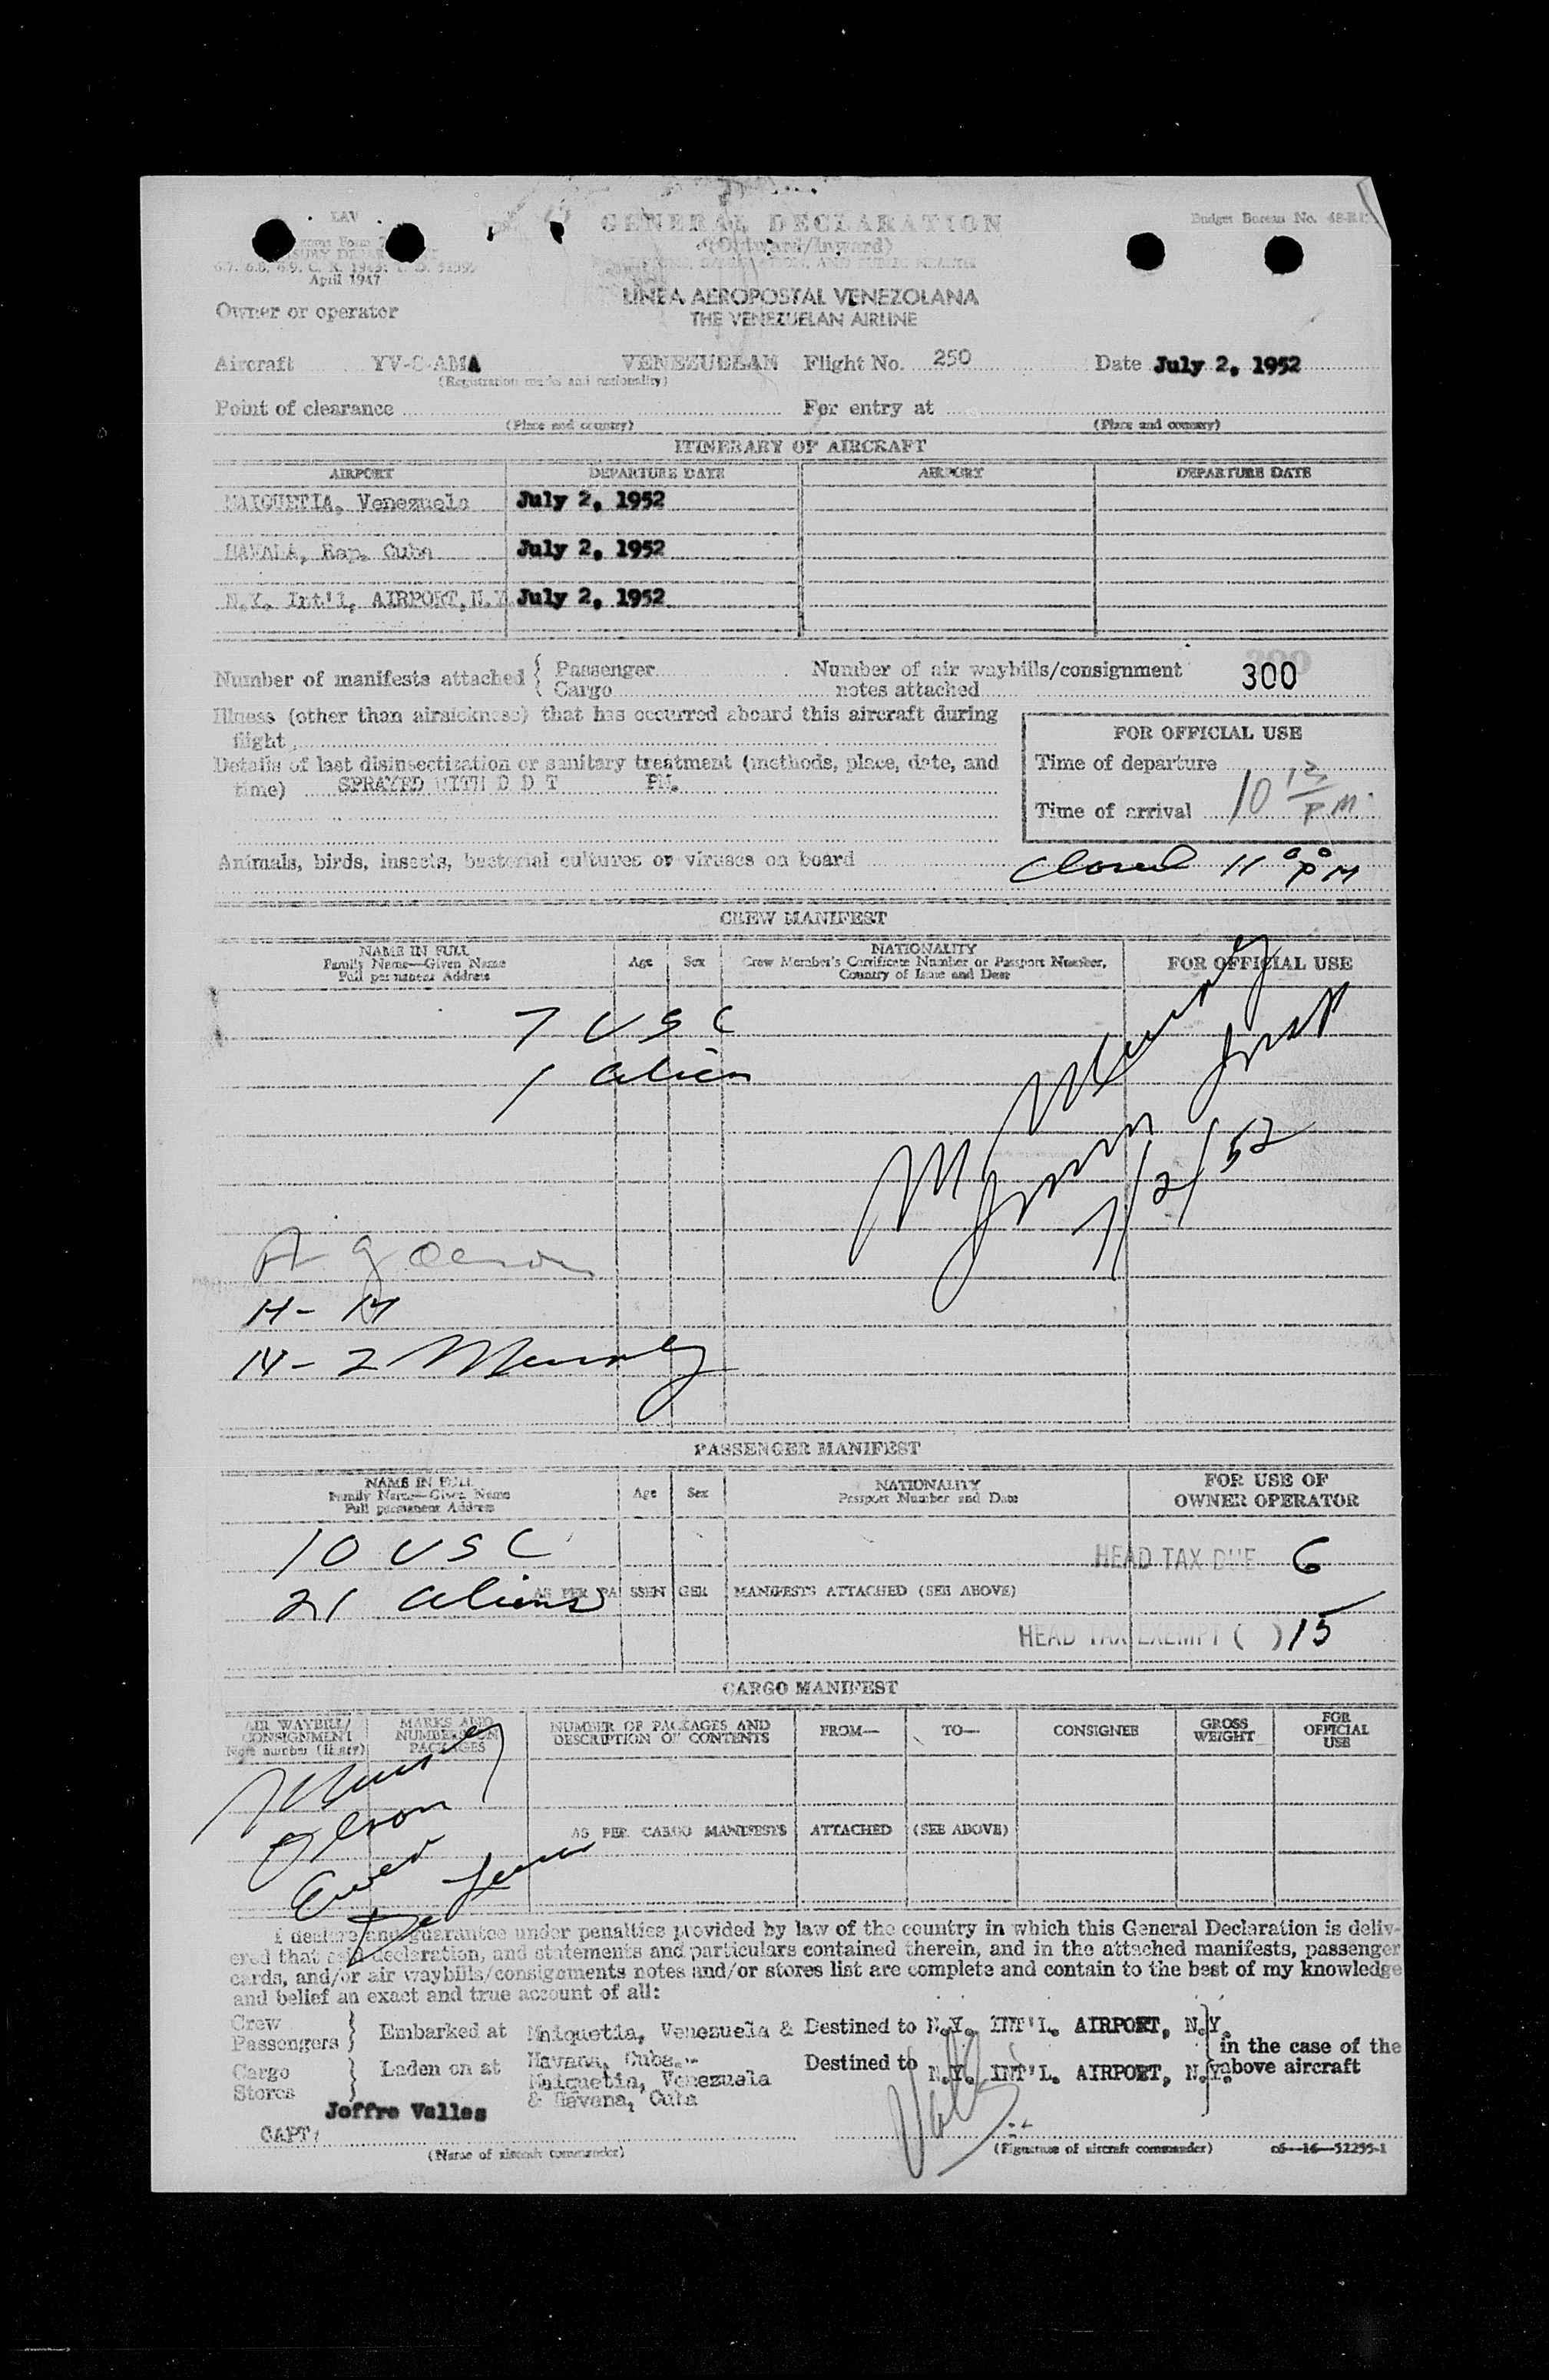 LAV
GENERAL DECLARATION
Budget Bureau No.
(Outward/Inward)
April 1947
LINEA AEROPOSTAL VENEZOLANA
THE VENEZUELAN AIRLINE
Owner or operator
Aircraft YV-C-AMA VENEZUELAN Flight No. 250 Date July 2, 1952
(Registration marks and nationality)
Point of clearance For entry at
(Place and country) (Place and country)
ITINERARY OF AIRCRAFT
AIRPORT DEPARTURE DATE AIRPORT DEPARTURE DATE
MAIQUETIA, Venezuela July 2, 1952
HAVANA, Rep. Cuba July 2, 1952
N.Y. Int'l, AIRPORT, N.Y. July 2, 1952
Number of manifests attached { Passenger Number of air waybills/consignment 300
Cargo notes attached
Illness (other than airsickness) that has occurred aboard this aircraft during
flight
FOR OFFICIAL USE
Details of last disinsectization or sanitary treatment (methods, place, date, and
time) SPRAYED WITH D D T PM.
Time of departure
Time of arrival 10 PM
Animals, birds, insects, bacterial cultures or viruses on board
Closed 11 00 PM
CREW MANIFEST
NAME IN FULL Age Sex NATIONALITY FOR OFFICIAL USE
Family Name—Given Name Crew Member's Certificate Number or Passport Number,
Full permanent Address Country of Issue and Date
7 USC
1 alien
7/2/52
H-
14-2
PASSENGER MANIFEST
NAME IN FULL Age Sex NATIONALITY FOR USE OF
Family Name—Given Name Passport Number and Date OWNER OPERATOR
Full permanent Address
10 USC HEAD TAX DUE 6
21 aliens AS PER PASSENGER MANIFESTS ATTACHED (SEE ABOVE)
HEAD TAX EXEMPT ( ) 15
CARGO MANIFEST
AIR WAYBILL/ MARKS AND NUMBER OF PACKAGES AND FROM— TO— CONSIGNEE GROSS FOR
CONSIGNMENT NUMBERS ON DESCRIPTION OF CONTENTS WEIGHT OFFICIAL
Note number (if any) PACKAGES USE
Olson
AS PER CARGO MANIFESTS ATTACHED (SEE ABOVE)
I declare and guarantee under penalties provided by law of the country in which this General Declaration is deliv-
ered that said declaration, and statements and particulars contained therein, and in the attached manifests, passenger
cards, and/or air waybills/consignments notes and/or stores list are complete and contain to the best of my knowledge
and belief an exact and true account of all:
Crew
Passengers } Embarked at Maiquetia, Venezuela & Destined to N.Y. INT'L. AIRPORT, N.Y.
Havana, Cuba. in the case of the
Cargo } Laden on at Maiquetia, Venezuela Destined to N.Y. INT'L. AIRPORT, N.Y. above aircraft
Stores & Havana, Cuba
Joffre Valles
CAPT:
(Name of aircraft commander) (Signature of aircraft commander) c6—16—52255-1